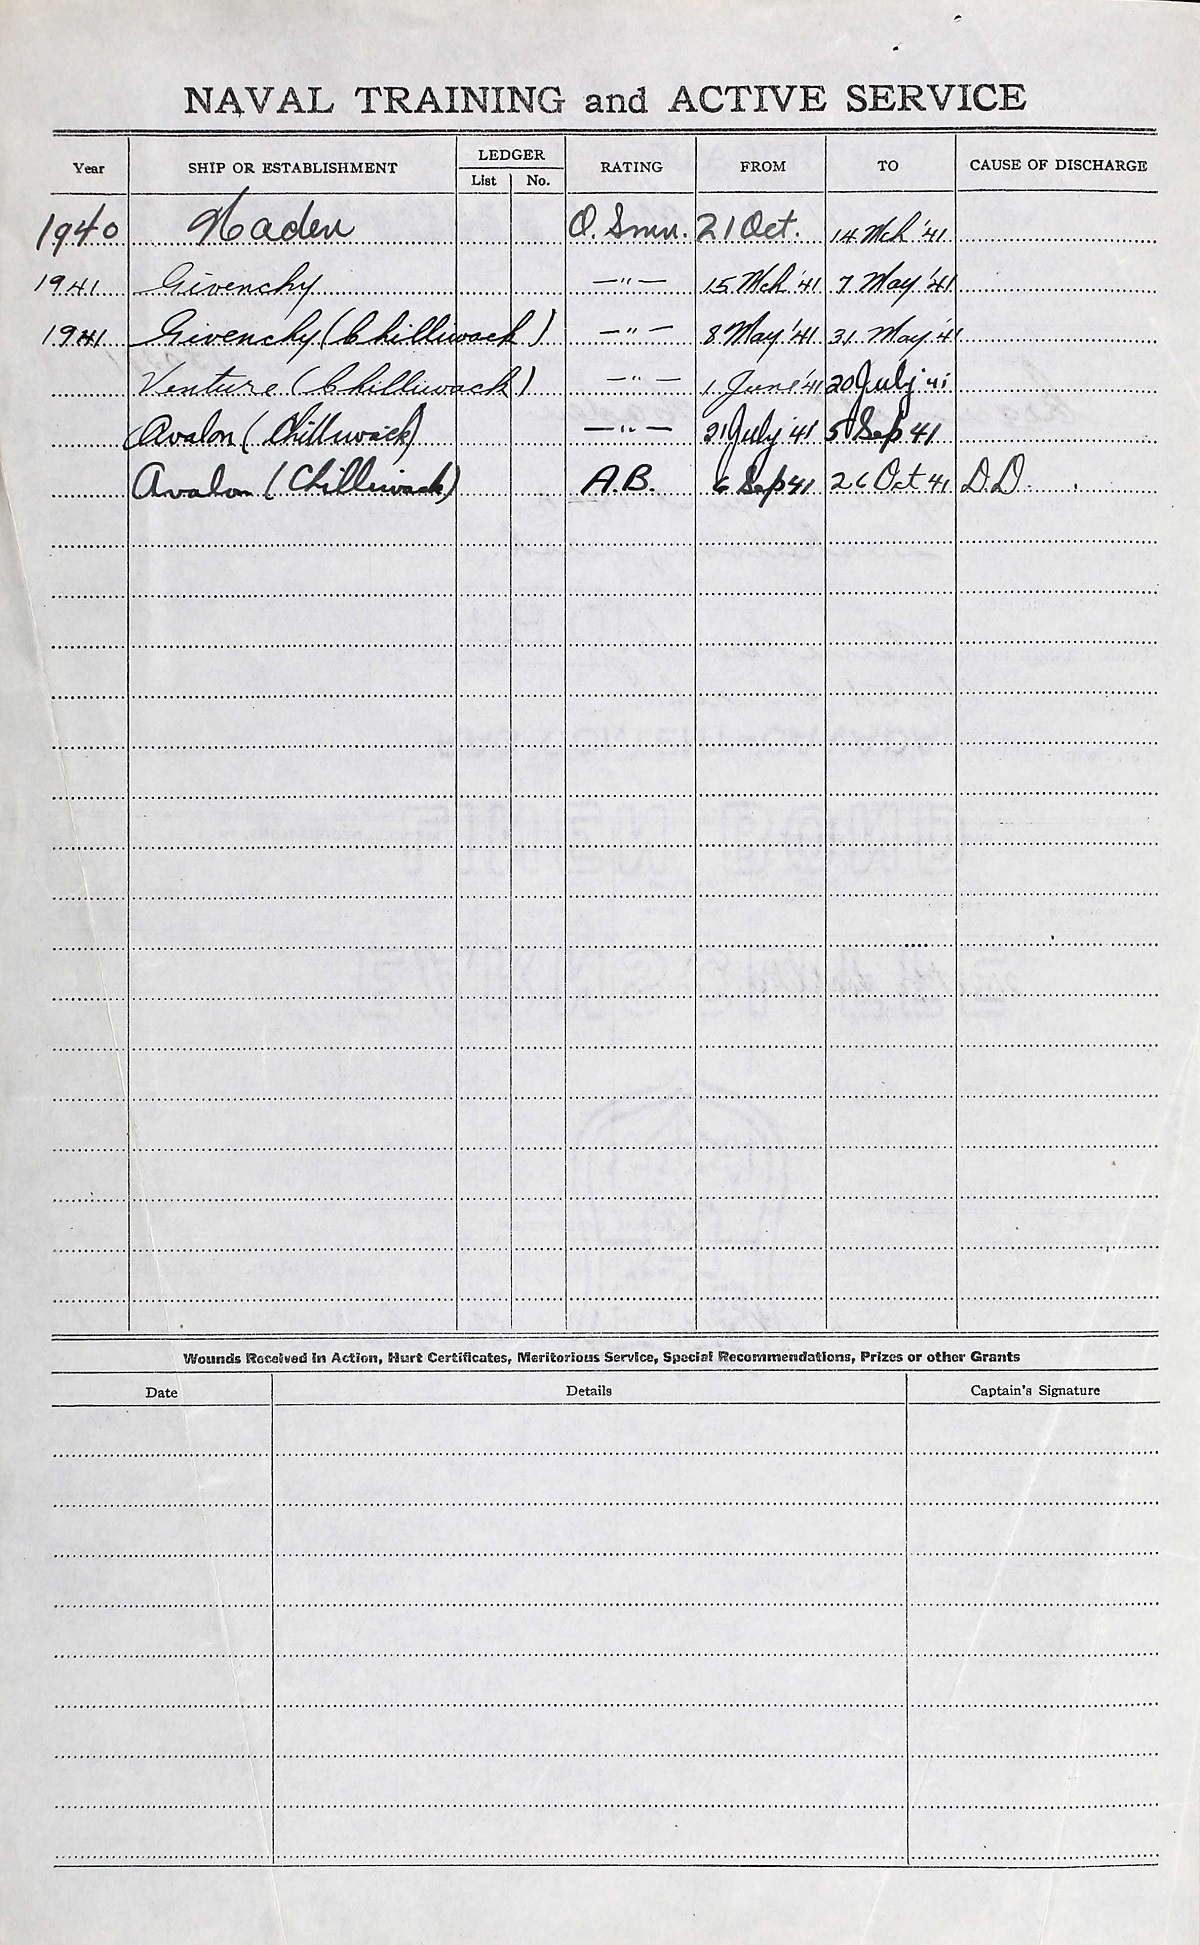 NAVAL TRAINING and ACTIVE SERVICE
Year SHIP OR ESTABLISHMENT LEDGER List No. RATING FROM TO CAUSE OF DISCHARGE
1940 Naden O. Smn. 21 Oct. 14 Mch '41
1941 Givenchy —"— 15 Mch '41 7 May '41
1941 Givenchy (Chilliwack) —"— 8 May '41 31 May '41
Venture (Chilliwack) —"— 1 June '41 20 July 41
Avalon (Chilliwack) —"— 21 July '41 5 Sep 41
Avalon (Chilliwack) A.B. 6 Sep 41 26 Oct 41 D.D.
Wounds Received in Action, Hurt Certificates, Meritorious Service, Special Recommendations, Prizes or other Grants
Date Details Captain's Signature